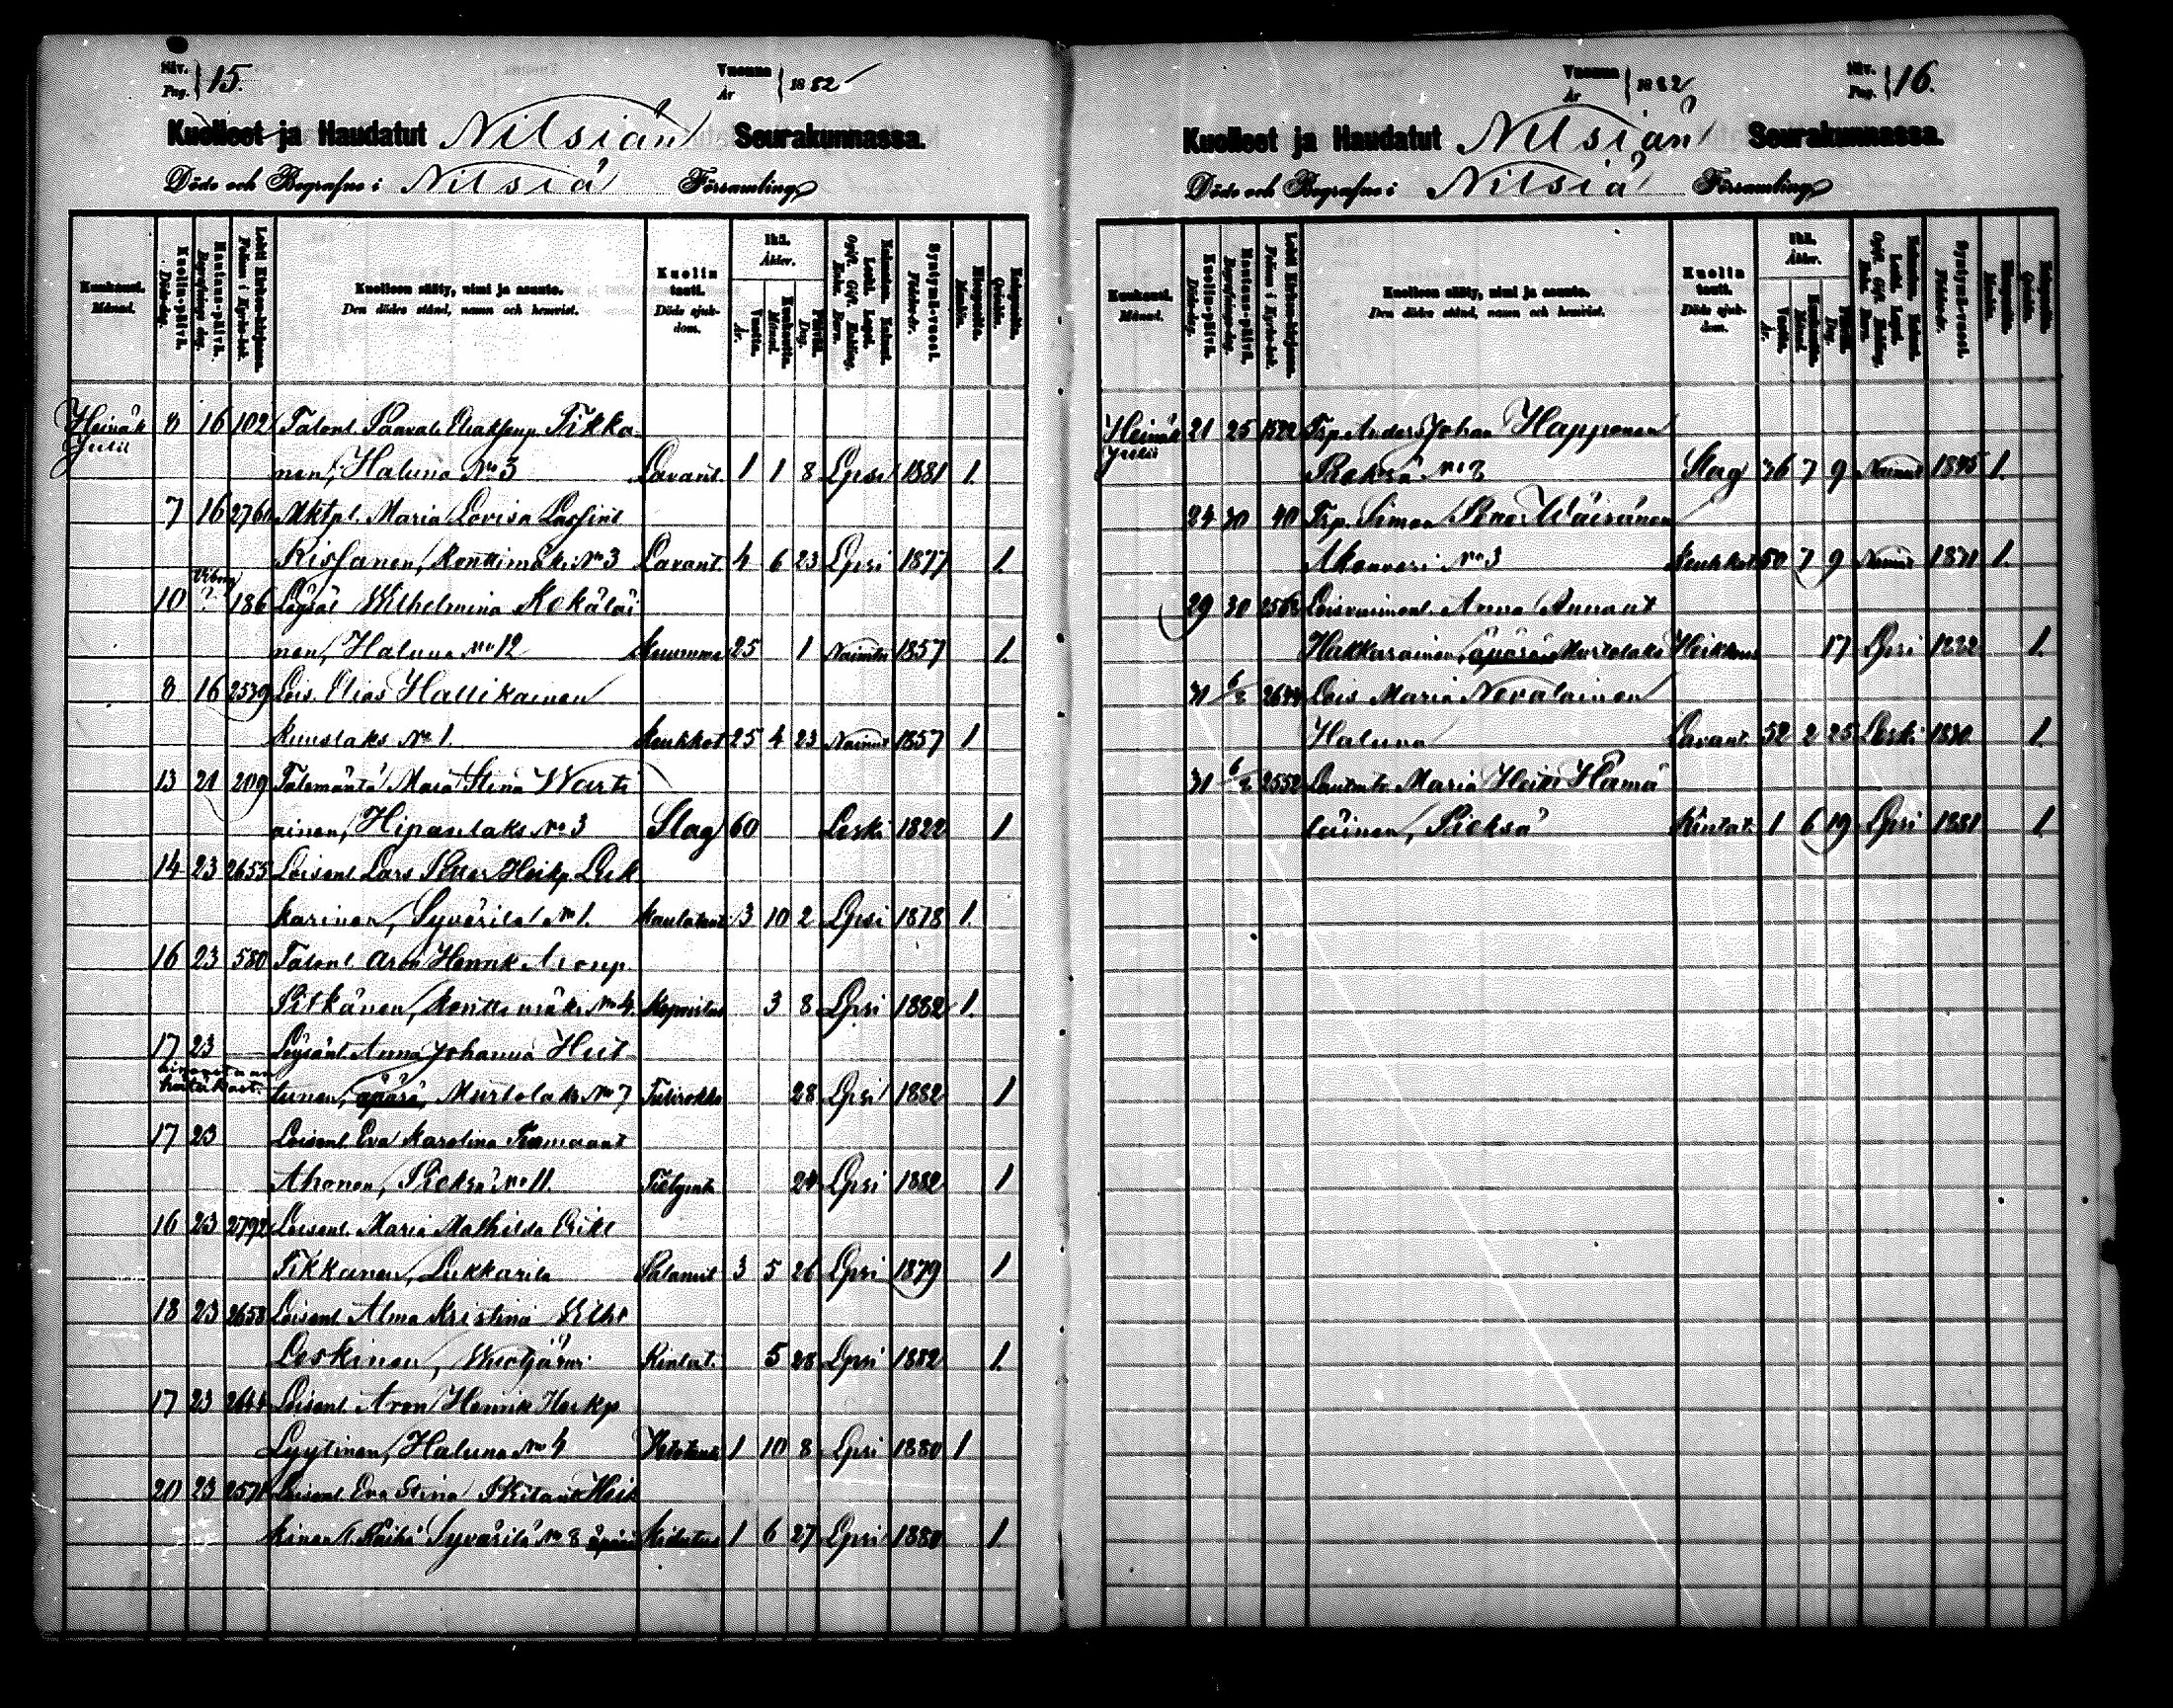 Siv. Pag. } 15.
Vuonna År } 1882
Kuolleet ja Haudatut Nilsiän Seurakunnassa.
Döde och Begrafne i Nilsiä Församling
Kuukausi. Månad.
Kuolin-päivä. Döds-dag.
Hautaus-päivä. Begrafnings-dag.
Lehti Kirkon-kirjassa. Folium i Kyrko-bok.
Kuolleen sääty, nimi ja asunto.
Den dödes stånd, namn och hemvist.
Kuolin tauti. Döds sjukdom.
Ikä. Ålder.
Vuotta. År.
Kuukautta. Månad.
Päivää. Dag.
Syntymä-vuosi. Födelse-år.
Miespuolta. Mankön.
Vaimopuolta. Qvinkön.
Heinäk 8 16 102 Talonl. Paavali Eliaksenp. Tikka
Julii
nen, Haluna No 3 Lavant. 1 1 8 Lpsi 1881 1.
7 16 2761 Mktpl. Maria Lovisa
Kissanen, Konttimäki No 3 Lavant. 4 6 23 Lpsi 1877 1.
Viborg
10 ? 186 Loysäl Wilhelmina Kokäläi
nen, Haluna No 12 Kuumma 25 1 Nainut 1857 1.
8 16 2539 Lois. Elias Hallikainen
No 1. Keuhkot 25 4 23 Nainut 1857 1
13 21 209 Talemäntä Maria Stina Warti
ainen, Hipanlaks No 3 Slag 60 Leski 1822 1
14 23 2655 Loisenl. Lars Petter Heikp. Luk
karinen, Syvärilä No 1. Kaulataut 3 10 2 Lpsi 1878 1.
16 23 580 Talonl. Aron Henrik Aronp.
Pitkänen, Konttimäki No 4. 3 8 Lpsi 1882 1.
17 23 Loysänl. Anna Johanna Hut
tunen, äpärä, Murtolaks No 7 Tulirokko 28 Lpsi 1882 1
17 23 Loisenl. Eva Karolina
Ahonen, Pieksä No 11. 24 Lpsi 1882 1
16 23 2792 Loisenl. Maria Mathilda Erikt
Tikkanen, Lukkarila 3 5 26 Lpsi 1879 1
18 23 2658 Loisenl. Alma Kristina Wilht
Leskinen, Wuotjärvi Rintat. 5 28 Lpsi 1882 1.
17 23 2644 Loisenl. Aron Henrik Heikp
Lyytinen, Haluna No 4 1 10 8 Lpsi 1880 1
20 23 2571 Loisenl. Eva Stina Heis
kinen, Syvärilä No 8 äpärä Kidutus 1 6 27 Lpsi 1880 1.
Vuonna År } 1882
Siv. Pag. } 16.
Kuolleet ja Haudatut Nilsiän Seurakunnassa.
Döde och Begrafne i Nilsiä Församling
Kuukausi. Månad.
Kuolin-päivä. Döds-dag.
Hautaus-päivä. Begrafnings-dag.
Lehti Kirkon-kirjassa. Folium i Kyrko-bok.
Kuolleen sääty, nimi ja asunto.
Den dödes stånd, namn och hemvist.
Kuolin tauti. Döds sjukdom.
Ikä. Ålder.
Vuotta. År.
Kuukautta. Månad.
Päivää. Dag.
Syntymä-vuosi. Födelse-år.
Miespuolta. Mankön.
Vaimopuolta. Qvinkön.
Heinäk 21 25 1522 Trp. Anders Johan Happonen
Julii
Pieksä No 2 Slag 36 7 9 Nainut 1845 1.
24 30 40 Trp. Simon Petter Wäisänen
Akonvesi No 3 Keuhkot 50 7 9 Nainut 1831 1.
29 30 2568 Loisvaimonl. Anna Annant
Hakkarainen, äpärä, Murtolaks Heikkous 17 Lpsi 1882 1.
31 6/8 2644 Lois Maria Nevalainen
Haluna Lavant. 52 2 25 Leski 1830 1.
31 6/8 2552 Maria Heikt Hämä
läinen, Pieksä Rintat. 1 6 19 Lpsi 1881 1.